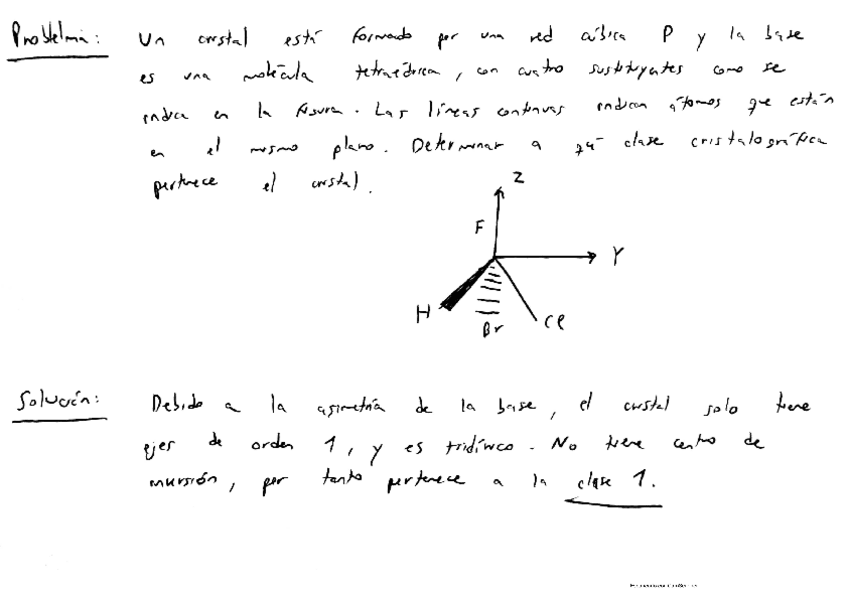 Problema: Un cristal está formado por una red cúbica P y la base
es una molécula tetraédrica, con cuatro sustituyentes como se
indica en la figura. Las líneas continuas indican átomos que están
en el mismo plano. Determinar a qué clase cristalográfica
pertenece el cristal.
Z
F
Y
H
Br
Cl
Solución: Debido a la asimetría de la base, el cristal solo tiene
ejes de orden 1, y es triclínico. No tiene centro de
inversión, por tanto pertenece a la clase 1.